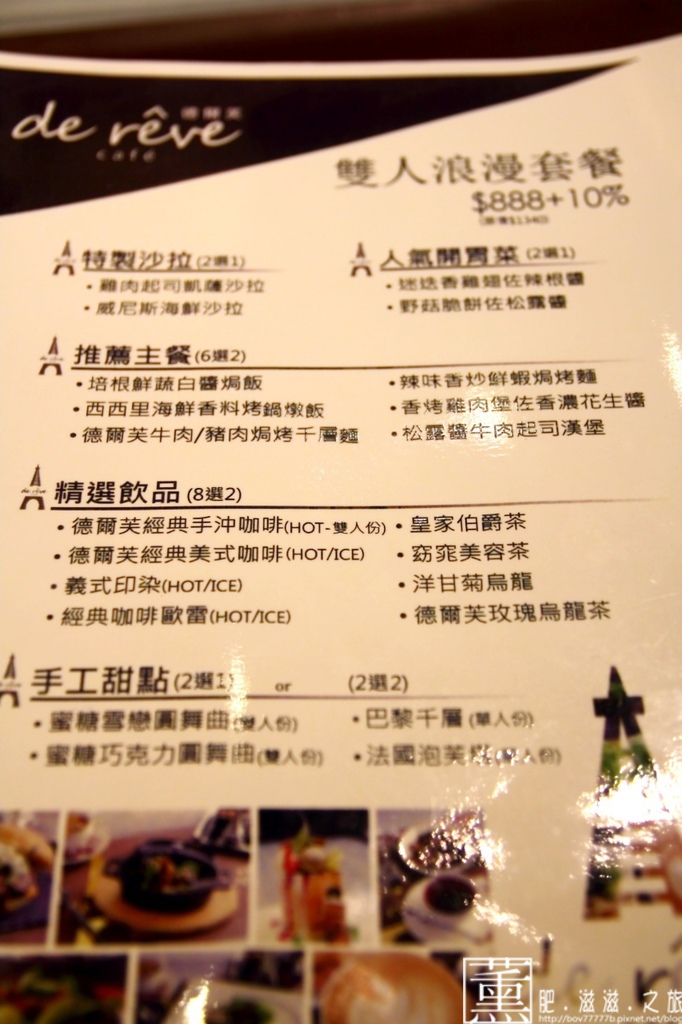 de rêve
café
德爾芙
雙人浪漫套餐
$888+10%
(原價$1340)
特製沙拉(2選1)
・雞肉起司凱薩沙拉
・威尼斯海鮮沙拉
人氣開胃菜(2選1)
・迷迭香雞翅佐辣根醬
・野菇脆餅佐松露醬
推薦主餐(6選2)
・培根鮮蔬白醬焗飯
・西西里海鮮香料烤鍋燉飯
・德爾芙牛肉/豬肉焗烤千層麵
・辣味香炒鮮蝦焗烤麵
・香烤雞肉堡佐香濃花生醬
・松露醬牛肉起司漢堡
精選飲品(8選2)
・德爾芙經典手沖咖啡(HOT-雙人份)
・德爾芙經典美式咖啡(HOT/ICE)
・義式印染(HOT/ICE)
・經典咖啡歐雷(HOT/ICE)
・皇家伯爵茶
・窈窕美容茶
・洋甘菊烏龍
・德爾芙玫瑰烏龍茶
手工甜點(2選1) or (2選2)
・蜜糖雪戀圓舞曲(雙人份)
・蜜糖巧克力圓舞曲(雙人份)
・巴黎千層(單人份)
・法國泡芙(單人份)
薰 肥.滋滋.之旅
http://bov77777b.pixnet.net/blog